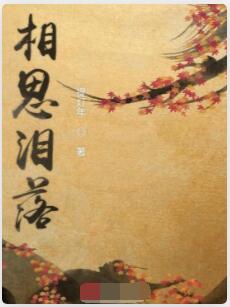 相思泪落
著